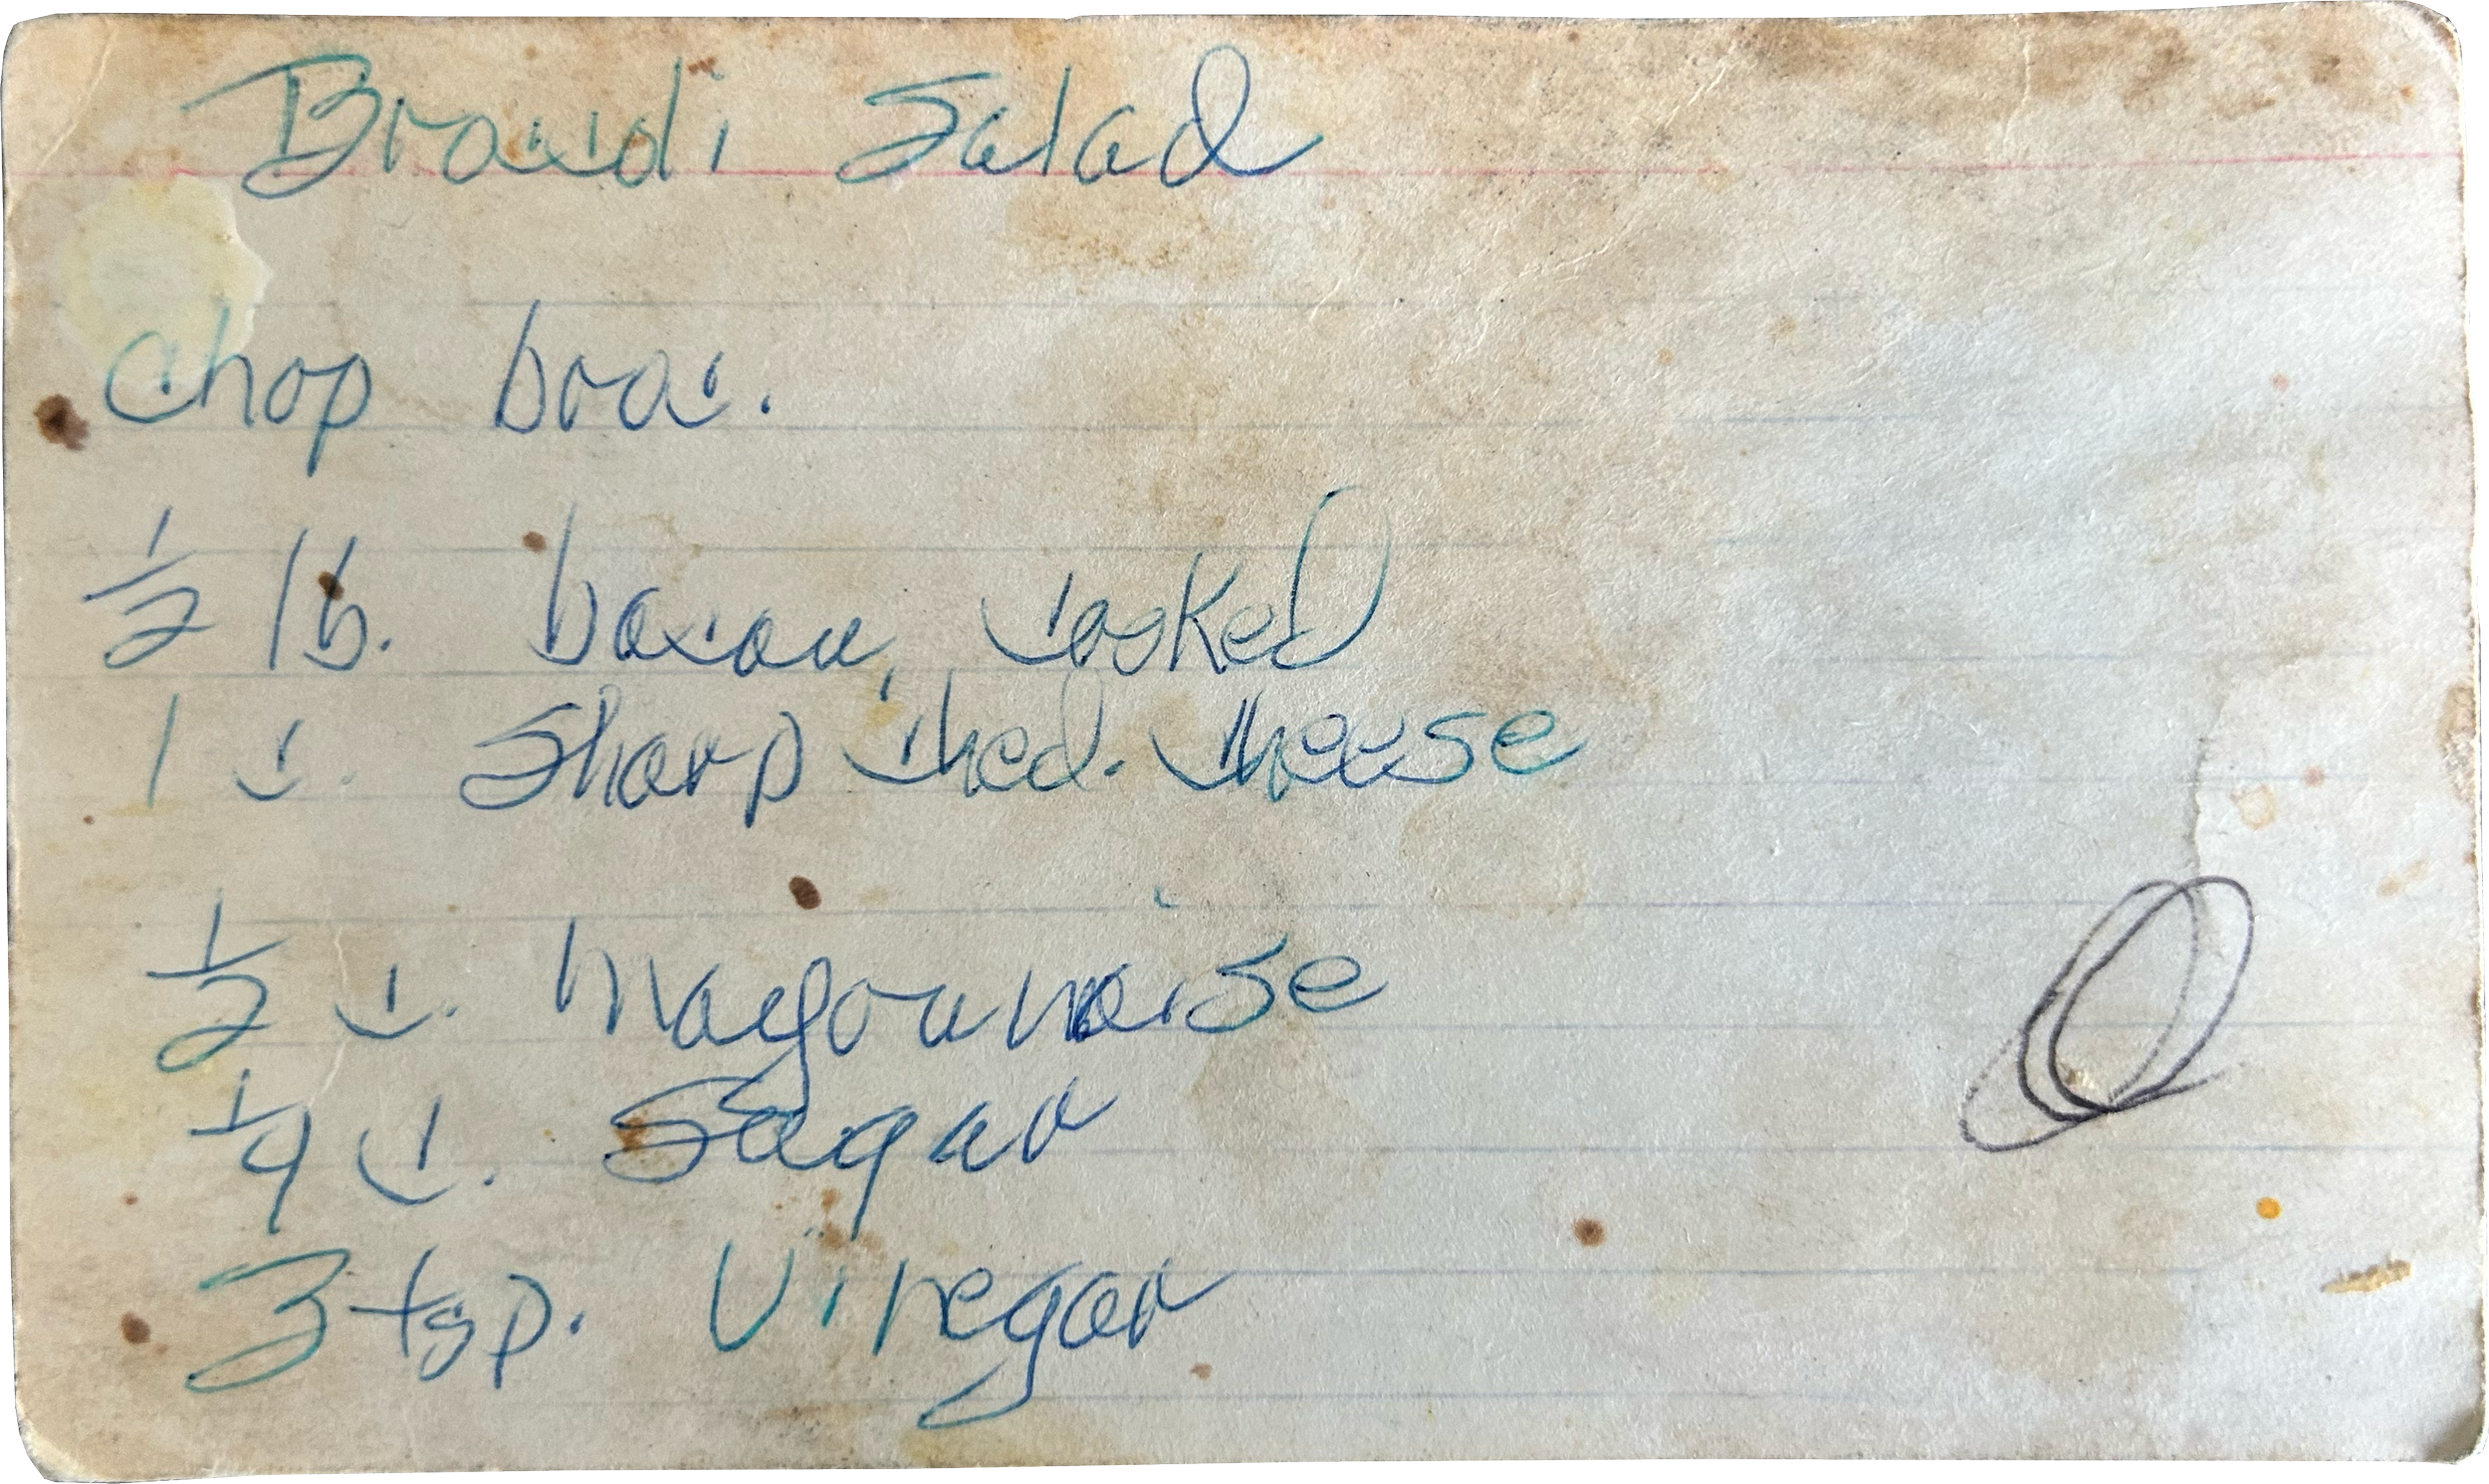 Broccoli Salad
chop broc.
1/2 lb. bacon, cooked
1 c. Sharp ched. cheese
1/2 c. mayonnaise
1/4 c. Sugar
3 tsp. Vinegar